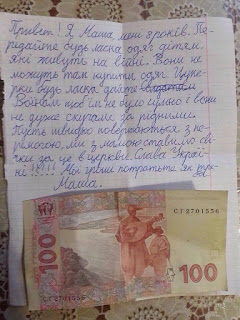 Привет! Я Маша, мені 8 років. Пе-
редайте будь ласка одяг дітям,
які живуть на війні. Вони не
можуть там купити одяг. Цуке-
рки будь ласка дайте
Воїнам щоб їм не було сумно і вони
не дуже скучали за рідними.
Пусть швидко повертаються з пе-
ремогою, ми з мамою ставимо сві-
чки за це в церкві. Слава Украї-
ні!!!!! Мої гроші потратьте як тре-
Маша.
100
СГ2701556
СГ2701556
100